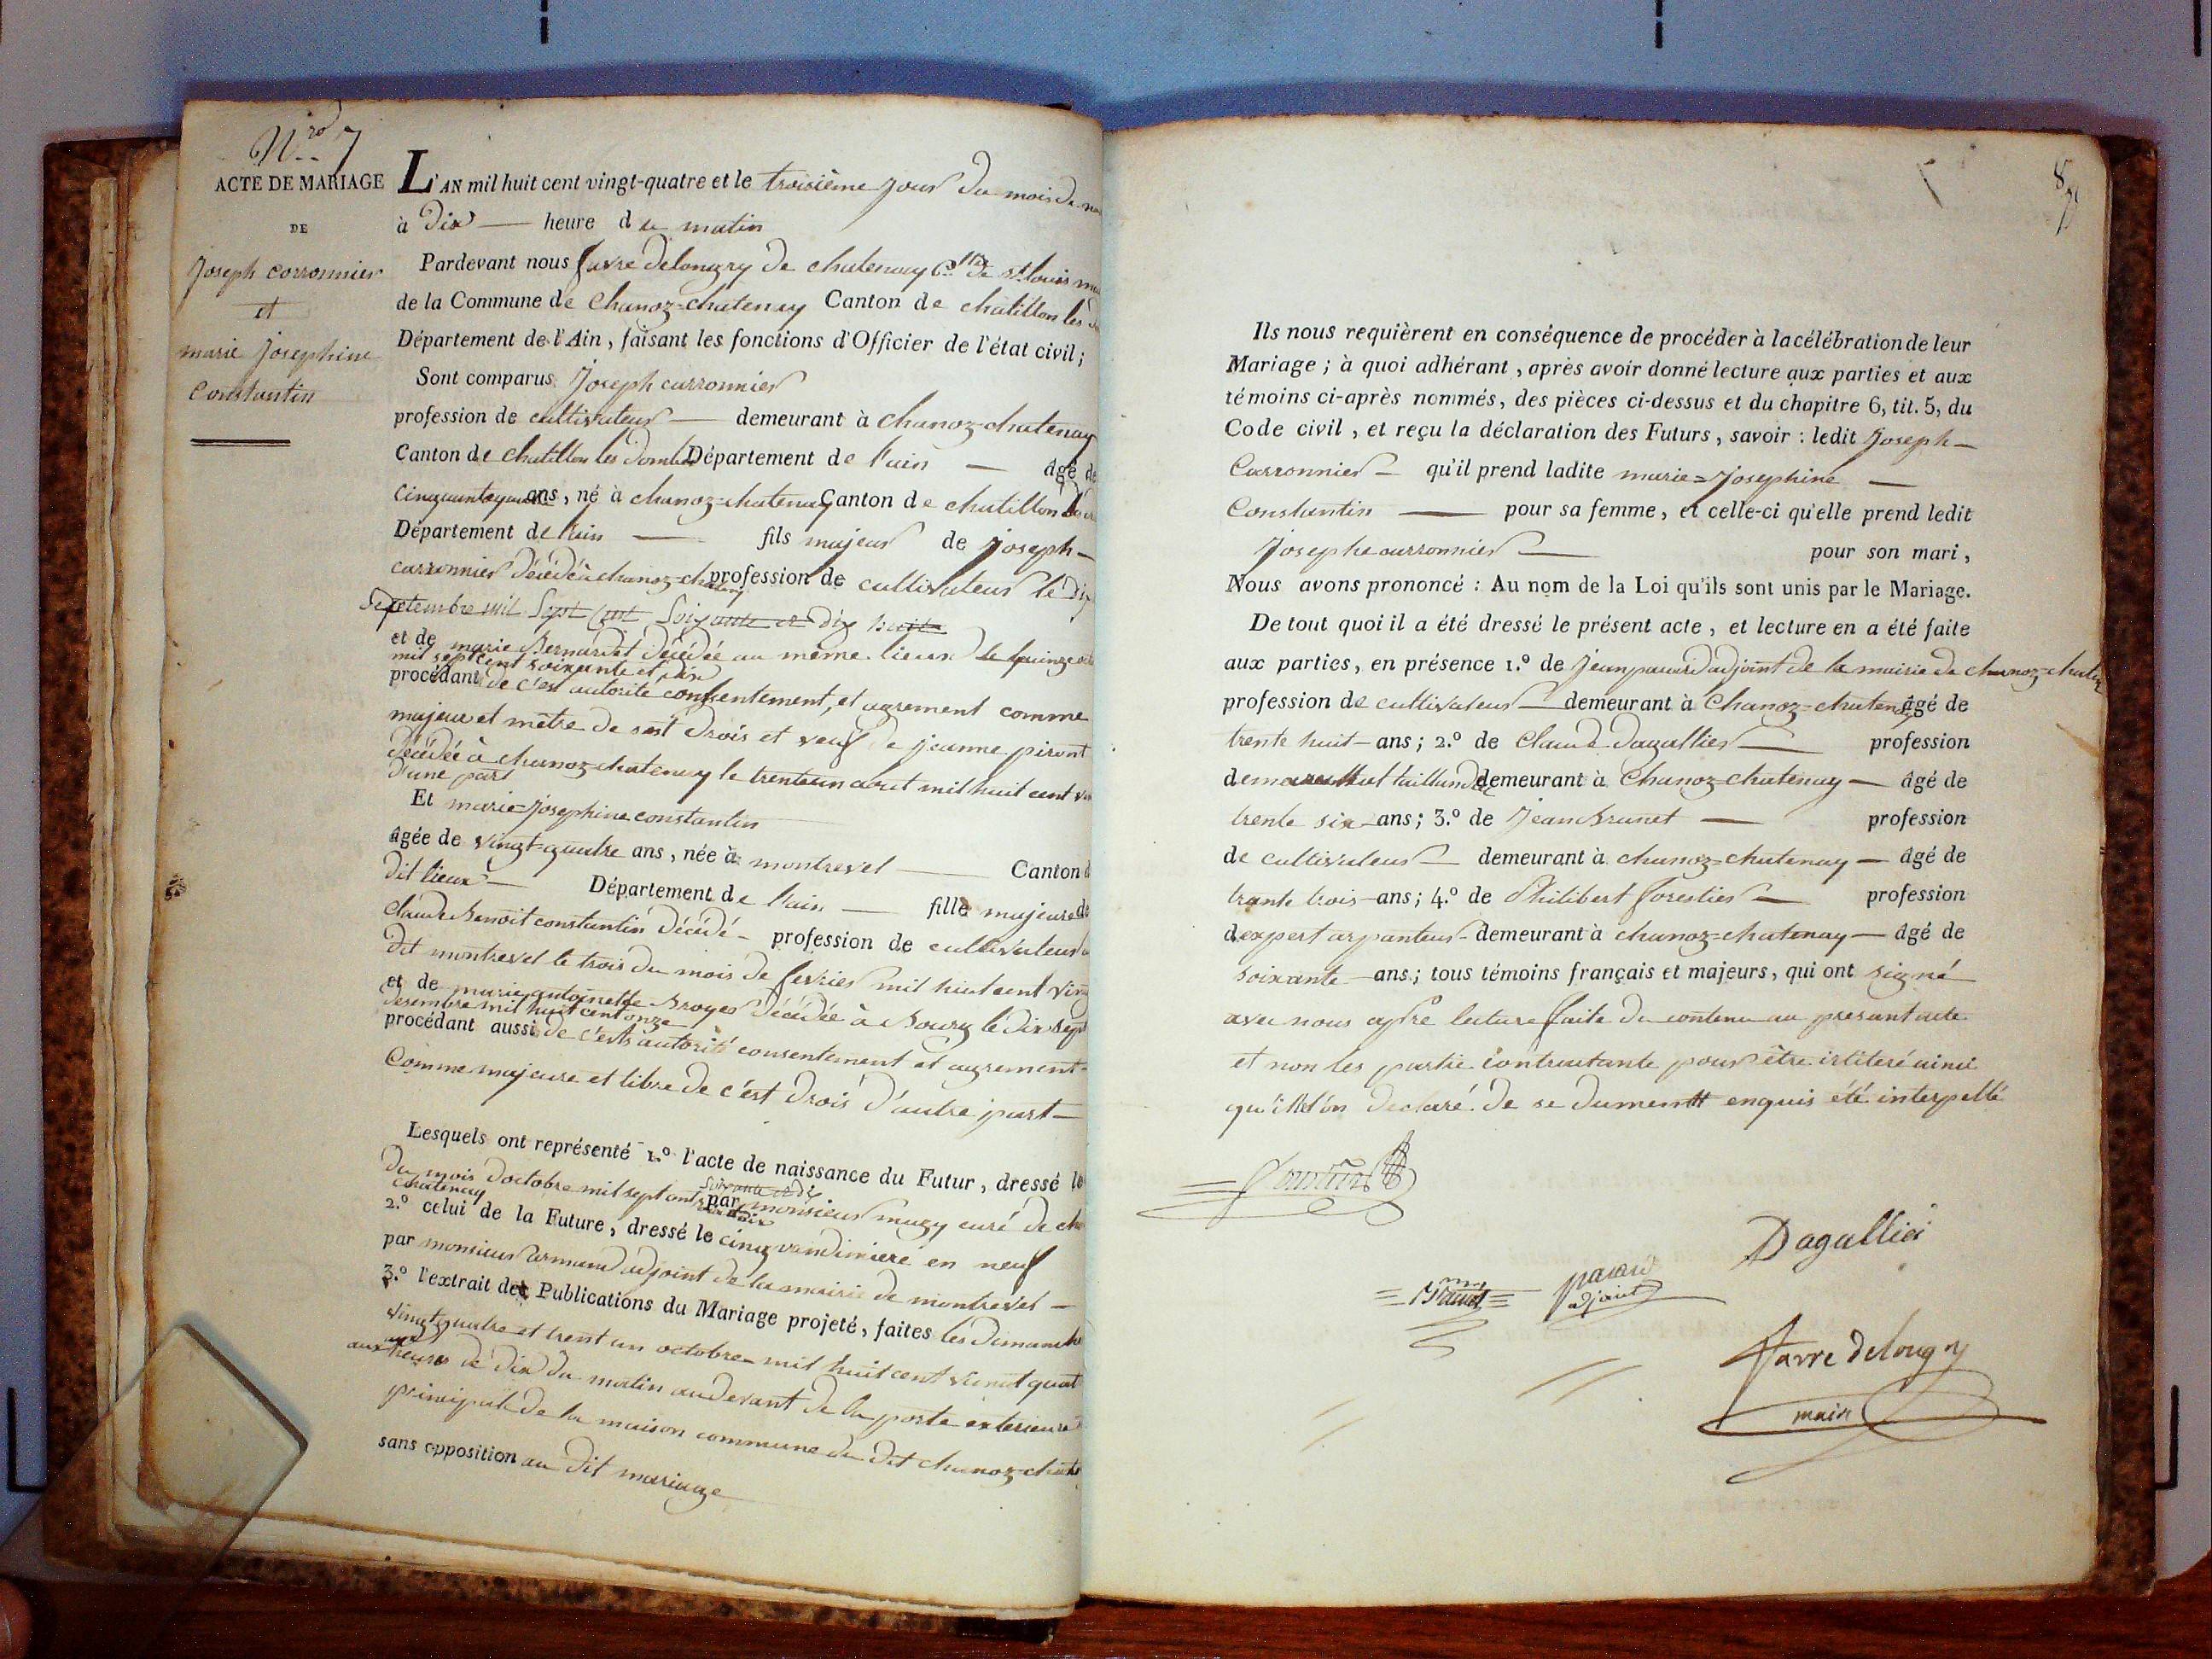 Nro 7
ACTE DE MARIAGE
DE
Joseph Corronnier
et
marie Josephine
Constantin
L'AN mil huit cent vingt-quatre et le troisième jour du mois de
à Dix — heure d u matin
Pardevant nous favre Delongry de chatenay de st louis
de la Commune de Chanoz-chatenay Canton de chatillon les
Département de l'Ain, faisant les fonctions d'Officier de l'état civil;
Sont comparus Joseph carronnier
profession de cultivateur — demeurant à chanoz-chatenay
Canton de Chatillon les Dombes Département de l'ain — âgé de
ans, né à chanoz-chatenay Canton de chatillon
Département de l'ain — fils majeur de joseph-
carronnier décédé à chanoz-chatenay profession de cultivateur le
Septembre mil Sept Cent Soixante et dix huit
et de marie Bernardet décédée au même lieux le quinze
mil sept cent soixente et dix
procédant de c'est autorité consentement, et agrement comme
majeur et mètre de sest Drois et veuf de jeanne piront
décédée à chanoz-chatenay le trenteun aout mil huit cent
d'une part
Et marie=josephine constantin
âgée de vingt-quatre ans, née à montrevel — Canton d
dit lieux — Département de l'ain — fille majeure de
claude Benoit constantin décédé - profession de cultivateur
dit montrevel le trois du mois de fevrier mil huit cent
et de marie antoinette Broyer décédée à Bourg le dix sept
desembre mil huit cent onze
procédant aussi de c'ests autorité consentement et agrement
Comme majeure et libre de c'est Drois d'autre part —
Lesquels ont représenté 1.º l'acte de naissance du Futur, dressé le
du mois d'octobre mil sept cent Soixante et dix par monsieur mugy curé de
chatenay
2.º celui de la Future, dressé le cinq vandimiere en neuf
par monsieur armand adjoint de la mairie de montrevel —
3.º l'extrait des Publications du Mariage projeté, faites les dimanche
vingtquatre et trent un octobre mil huit cent vingt quat
aux heures de dix du matin au devant de la porte exterieure
principale de la maison commune du dit chanoz-
sans opposition au dit mariage
8
Ils nous requièrent en conséquence de procéder à la célébration de leur
Mariage ; à quoi adhérant, après avoir donné lecture aux parties et aux
témoins ci-après nommés, des pièces ci-dessus et du chapitre 6, tit. 5, du
Code civil, et reçu la déclaration des Futurs, savoir : ledit Joseph —
Carronnier — qu'il prend ladite marie=Josephine —
Constantin — pour sa femme, et celle-ci qu'elle prend ledit
Josephe carronnier — pour son mari,
Nous avons prononcé : Au nom de la Loi qu'ils sont unis par le Mariage.
De tout quoi il a été dressé le présent acte, et lecture en a été faite
aux parties, en présence 1.º de jean adjoint de la mairie de chanoz-
profession de cultivateur — demeurant à Chanoz-chatenay âgé de
trente huit — ans; 2.º de Claude Dagallier — profession
demeurant à Chanoz-chatenay — âgé de
trente six — ans; 3.º de Jean Brunet — profession
de cultivateur — demeurant à chanoz=chatenay — âgé de
trante trois — ans; 4.º de Philibert forestier — profession
d expert arpanteur - demeurant à chanoz=chatenay — âgé de
soixante — ans; tous témoins français et majeurs, qui ont signé
avec nous apre lecture faite du contenu au presant acte
et non les partie contractante pour être irliteré ainci
qu'il l'on declaré de se dument enquis été interpellé
Dagallier
adjoint
favre delongry
maire